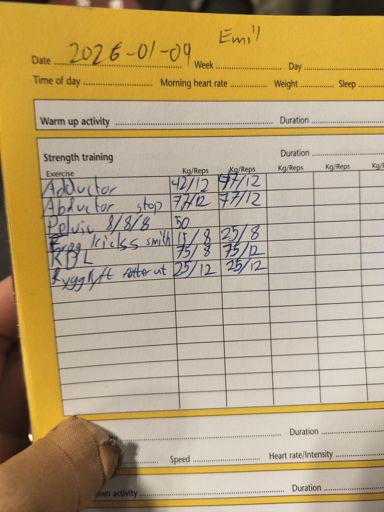 Emil
Date 2026-01-09 Week Day
Time of day Morning heart rate Weight Sleep
Warm up activity Duration
Strength training Duration
Exercise Kg/Reps Kg/Reps Kg/Reps Kg/Reps Kg/
Adductor 42/12 77/12
Abductor stop 77/12 77/12
Pelvic 8/8/8 50
kickss smith 15/8 25/8
RDL 75/8 75/12
Rygglyft 25/12 25/12
Duration
Speed Heart rate/Intensity
own activity Duration